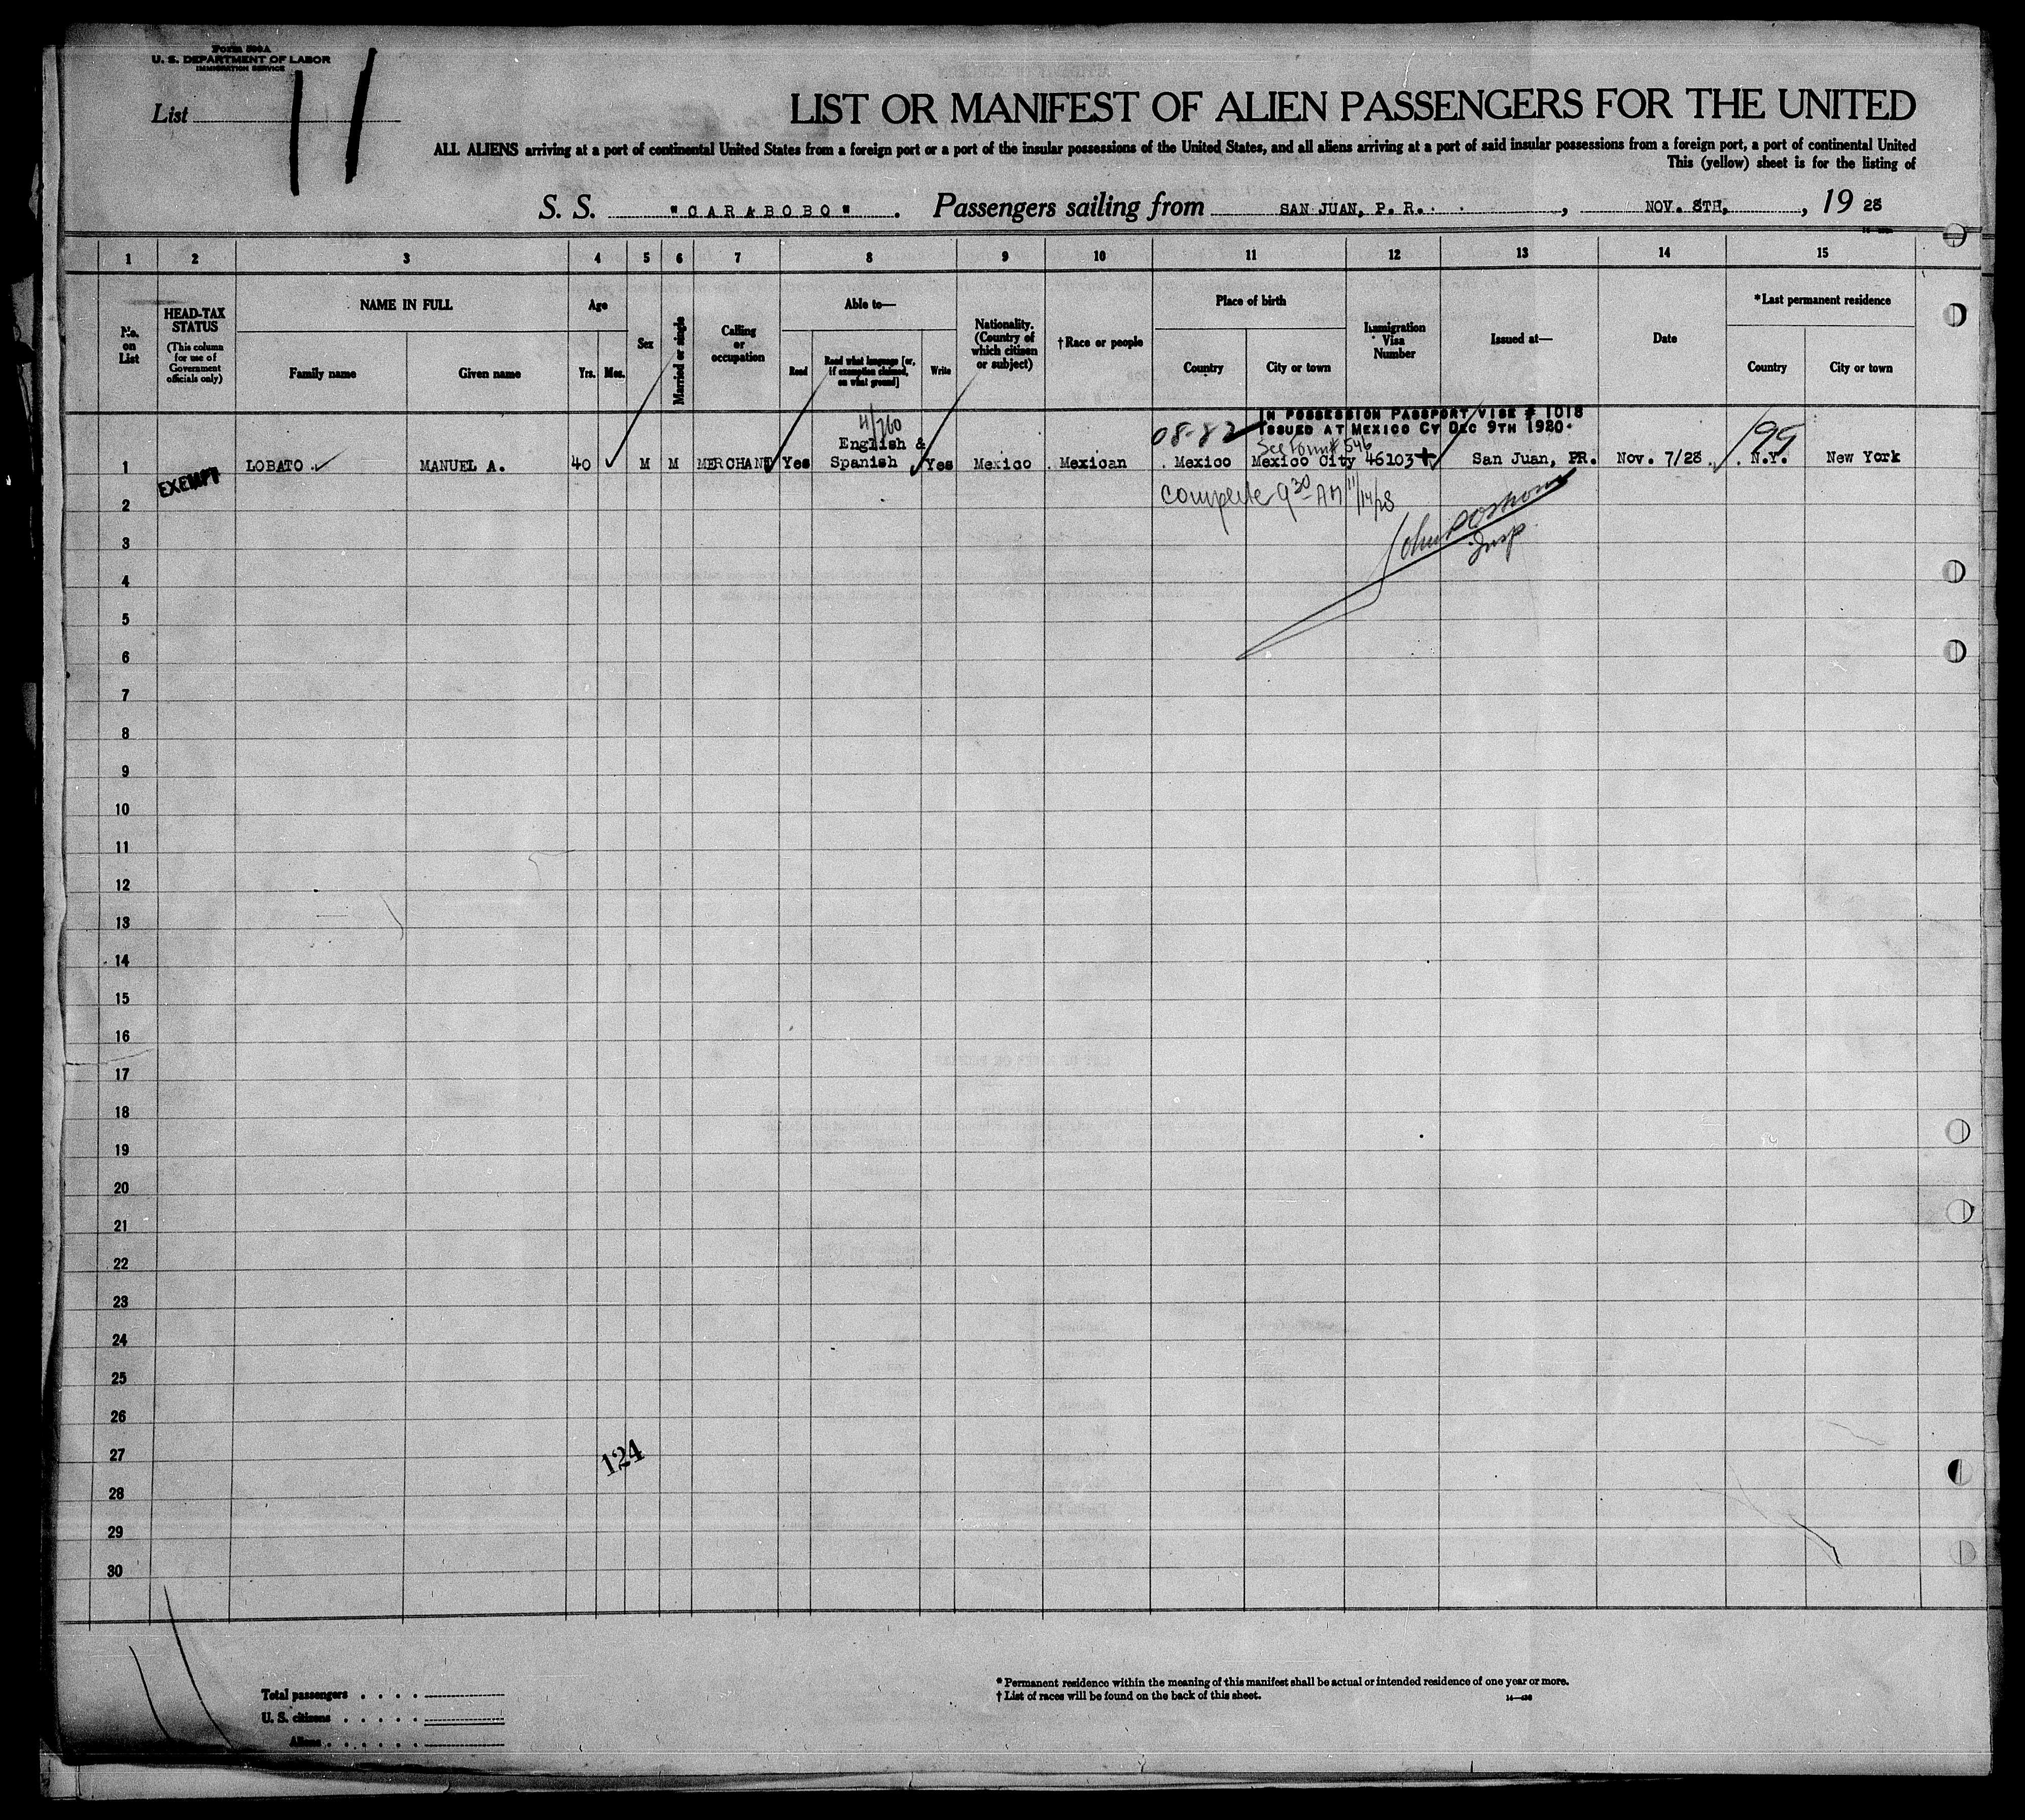 Form 500A
U. S. DEPARTMENT OF LABOR
IMMIGRATION SERVICE
List 11
LIST OR MANIFEST OF ALIEN PASSENGERS FOR THE UNITED
ALL ALIENS arriving at a port of continental United States from a foreign port or a port of the insular possessions of the United States, and all aliens arriving at a port of said insular possessions from a foreign port, a port of continental United
This (yellow) sheet is for the listing of
S. S. "CARABOBO". Passengers sailing from SAN JUAN, P. R., NOV. 8TH, , 19 28
1 2 3 4 5 6 7 8 9 10 11 12 13 14 15
No. on List
HEAD-TAX STATUS
(This column for use of Government officials only)
NAME IN FULL
Family name
Given name
Age
Yrs. Mos.
Sex
Married or single
Calling or occupation
Able to—
Read
Read what language [or, if exemption claimed, on what ground]
Write
Nationality. (Country of which citizen or subject)
†Race or people
Place of birth
Country
City or town
Immigration Visa Number
Issued at—
Date
*Last permanent residence
Country
City or town
IN POSSESSION PASSPORT VISE # 1018
ISSUED AT MEXICO CY DEC 9TH 1920.
08-82
4/760
199
See Form # 546
English &
1 EXEMPT LOBATO MANUEL A. 40 M M MERCHANT Yes Spanish Yes Mexico Mexican Mexico Mexico City 46103 San Juan, PR. Nov. 7/28 N.Y. New York
complete 9 30 AM 11/14/28
John
Insp
2
3
4
5
6
7
8
9
10
11
12
13
14
15
16
17
18
19
20
21
22
23
24
25
26
27
124
28
29
30
Total passengers
U. S. citizens
Aliens
* Permanent residence within the meaning of this manifest shall be actual or intended residence of one year or more.
† List of races will be found on the back of this sheet.